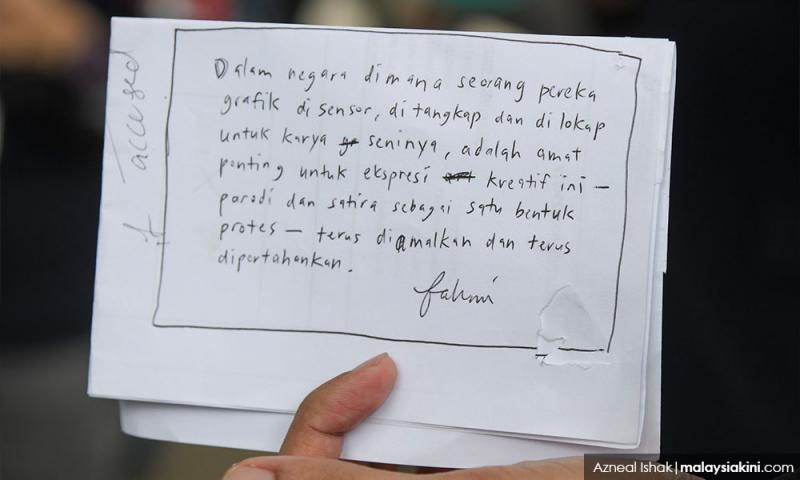 Dalam negara dimana seorang pereka
grafik di sensor, di tangkap dan di lokap
untuk karya seninya, adalah amat
penting untuk ekspresi kreatif ini —
parodi dan satira sebagai satu bentuk
protes — terus diamalkan dan terus
dipertahankan.
fahmi
accused
Azneal Ishak | malaysiakini.com